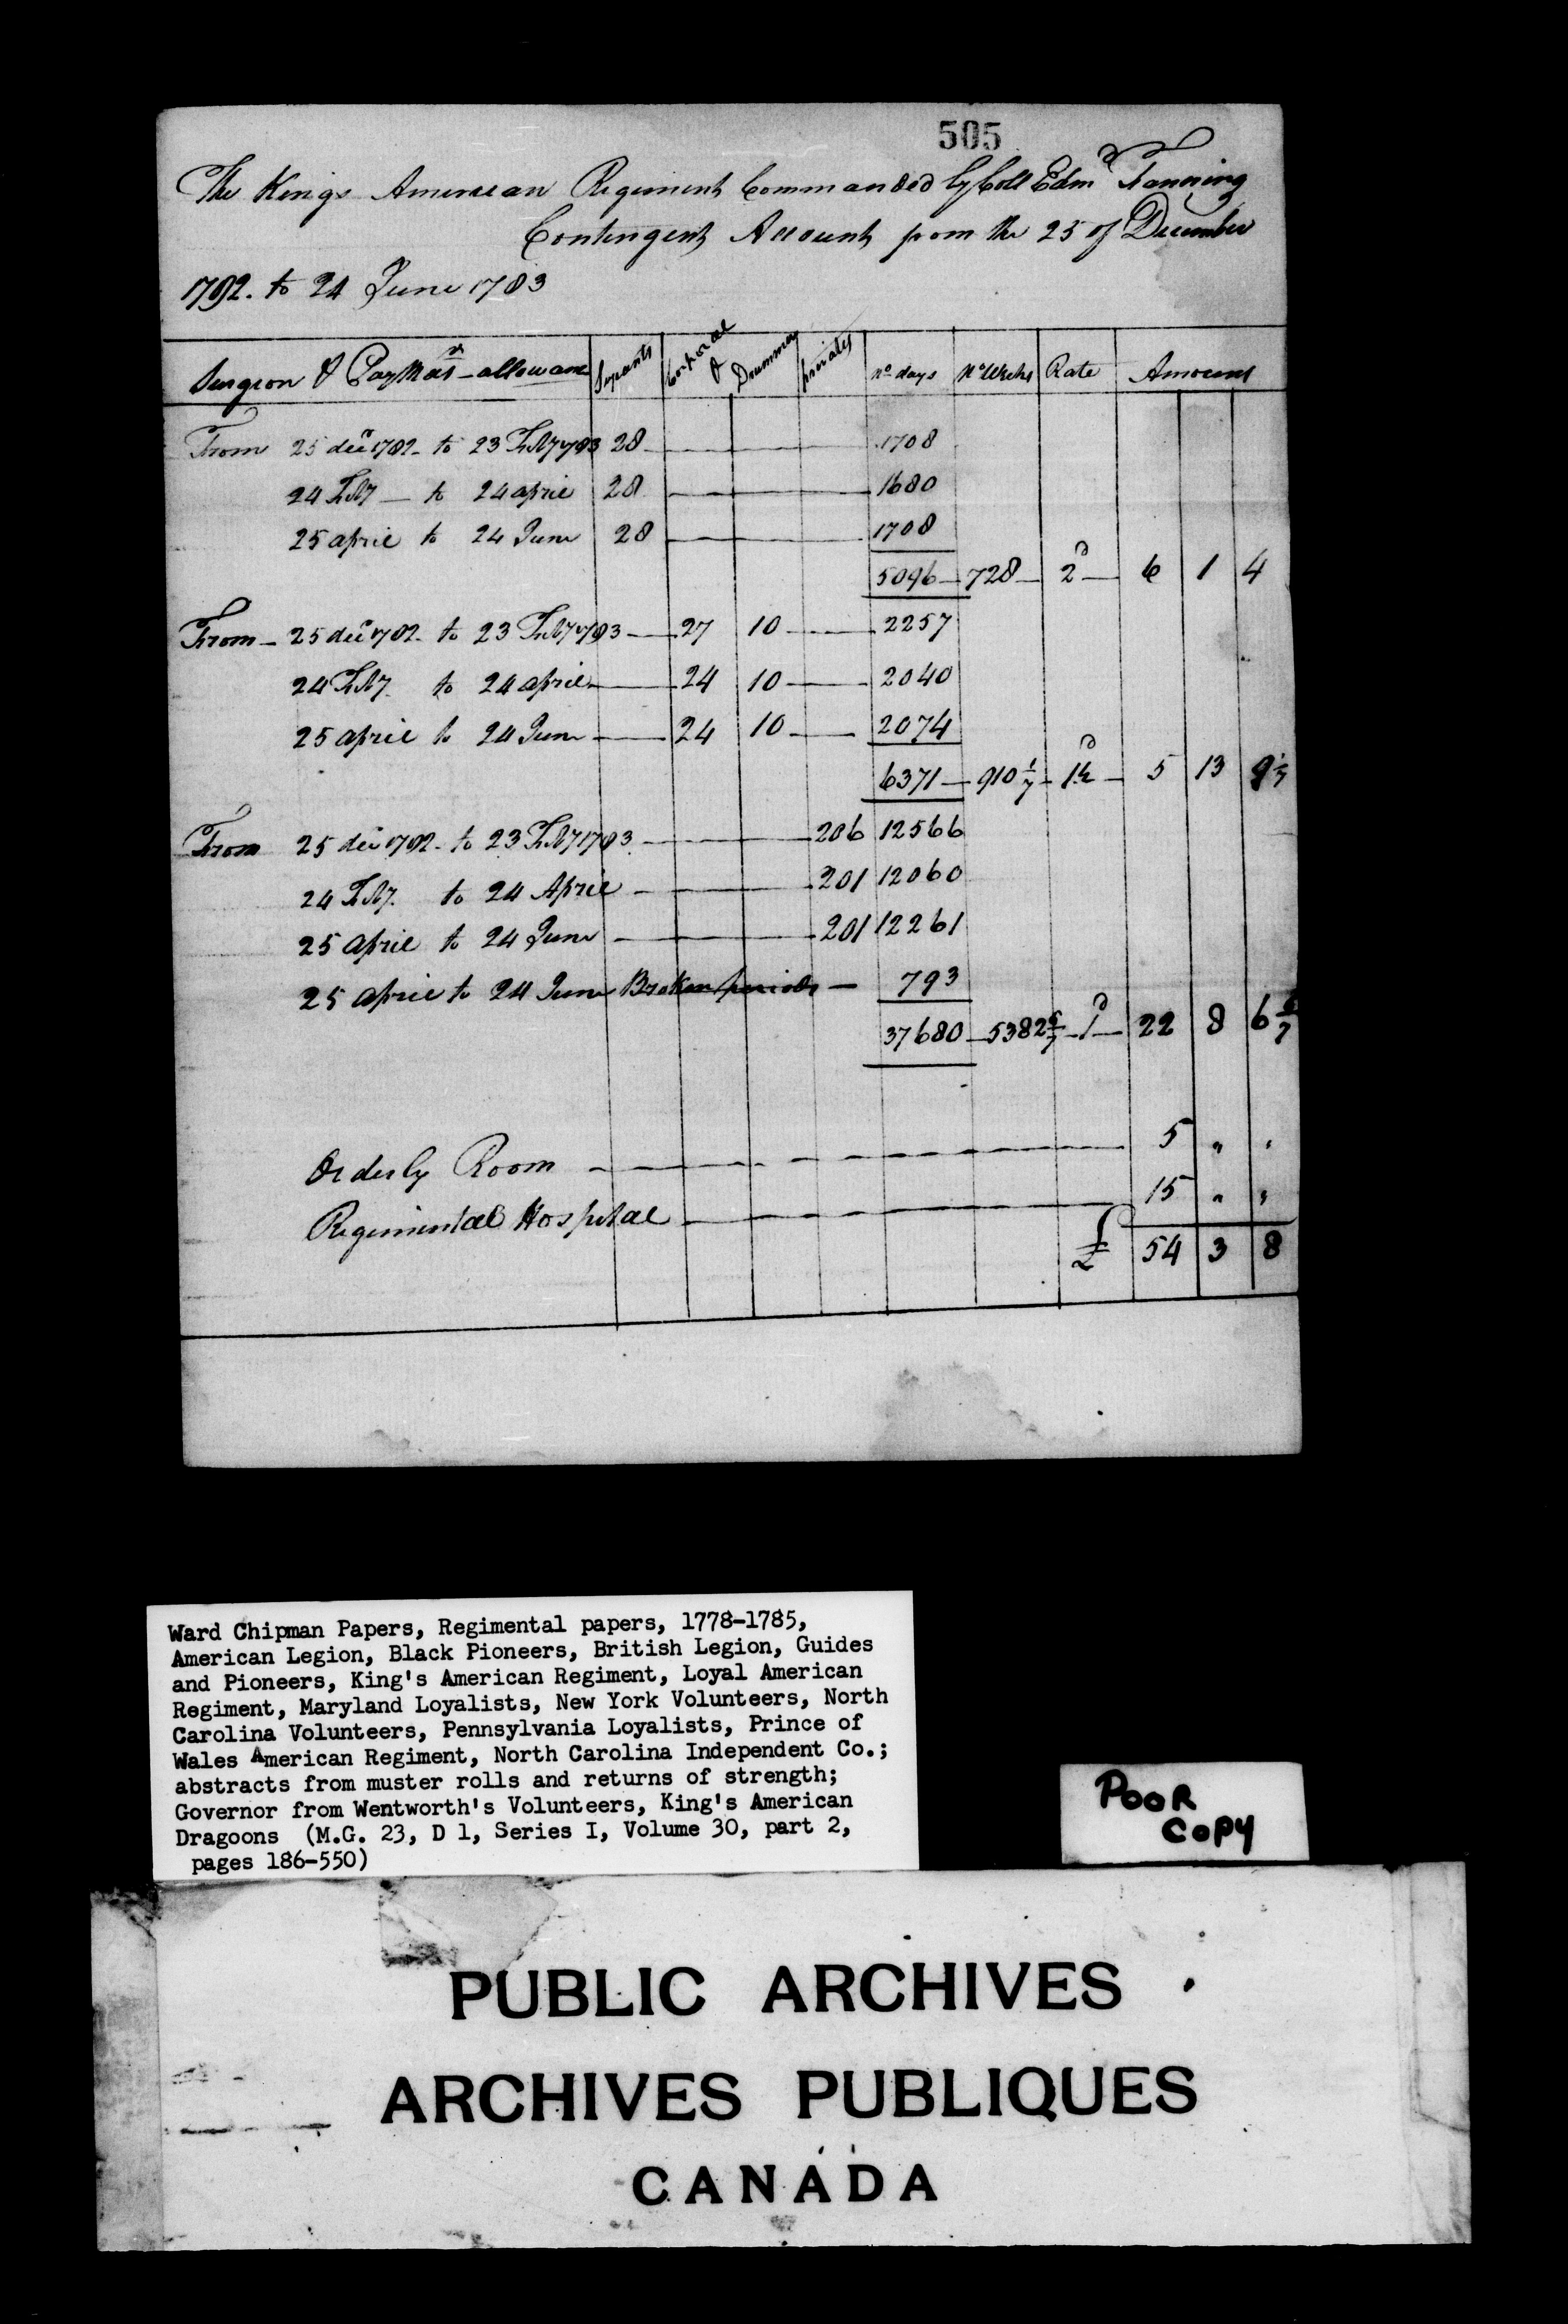 505
The Kings American Regiment Commanded by Coll Edmd Fanning
Contingent Account from the 25 of December
1782. to 24 June 1783
Surgeon & PayMasrs allowance Serjants Corporal & Drummers privates No days No Weeks Rate Amount
From 25 decr 1782 - to 23 Feby 1783 28 - 1708
24 Feby - to 24 april 28 - 1680
25 april to 24 June 28 - 1708
5096 - 728 - 2d - 6 1 4
From - 25 decr 1782 - to 23 Feby 1783 - 27 10 - 2257
24 Feby to 24 april - 24 10 - 2040
25 april to 24 June - 24 10 - 2074
6371 - 910 1/7 - 1½d - 5 13 9 1/7
From 25 decr 1782 - to 23 Feby 1783 - 206 12566
24 Feby. to 24 April - 201 12060
25 april to 24 June - 201 12261
25 april to 24 June Broken periods - 793
37680 - 5382 6/7 - 1d - 22 8 6 6/7
Orderly Room - 5 " "
Regimental Hospital - 15 " "
£ 54 3 8
Ward Chipman Papers, Regimental papers, 1778-1785,
American Legion, Black Pioneers, British Legion, Guides
and Pioneers, King's American Regiment, Loyal American
Regiment, Maryland Loyalists, New York Volunteers, North
Carolina Volunteers, Pennsylvania Loyalists, Prince of
Wales American Regiment, North Carolina Independent Co.;
abstracts from muster rolls and returns of strength;
Governor from Wentworth's Volunteers, King's American
Dragoons (M.G. 23, D 1, Series I, Volume 30, part 2,
pages 186-550)
POOR
COPY
PUBLIC ARCHIVES
ARCHIVES PUBLIQUES
CANADA